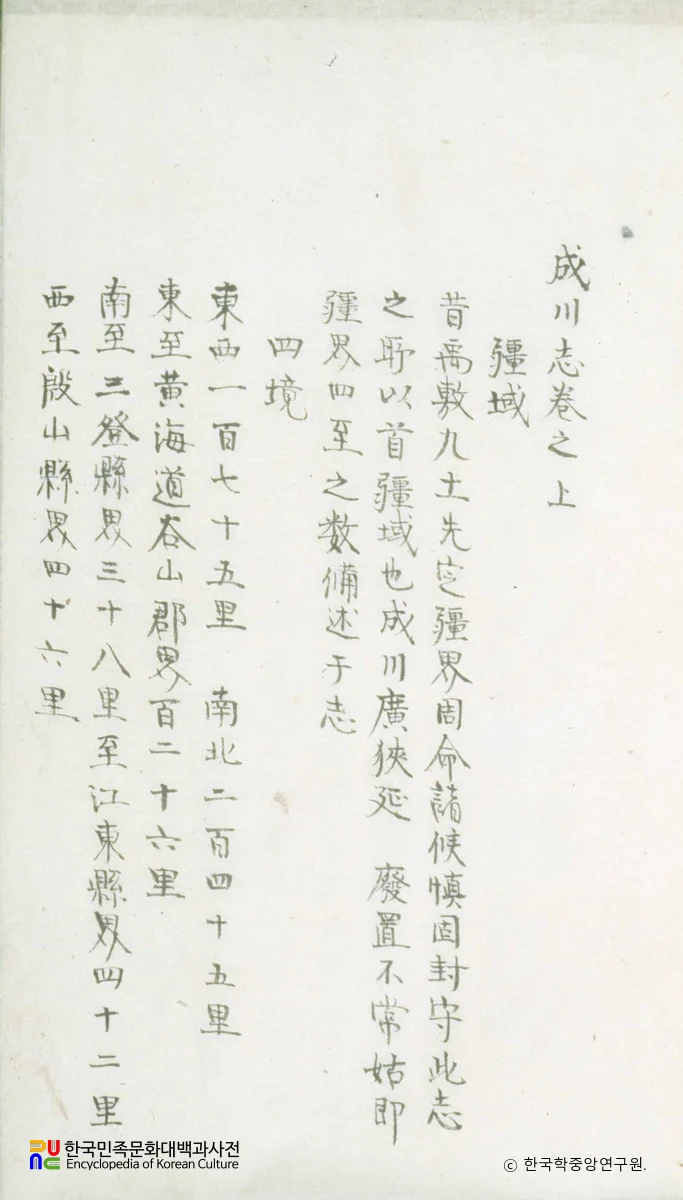 成川志卷之上
疆域
昔禹敷九土先定疆界周命諸候慎固封守此志
之所以首疆域也成川廣狹延 廢置不常姑即
疆界四至之数備述于志
四境
東西一百七十五里 南北二百四十五里
東至黄海道谷山郡界百二十六里
南至三登縣界三十八里至江東縣界四十二里
西至殷山縣界四十六里
한국민족문화대백과사전
Encyclopedia of Korean Culture
ⓒ 한국학중앙연구원.